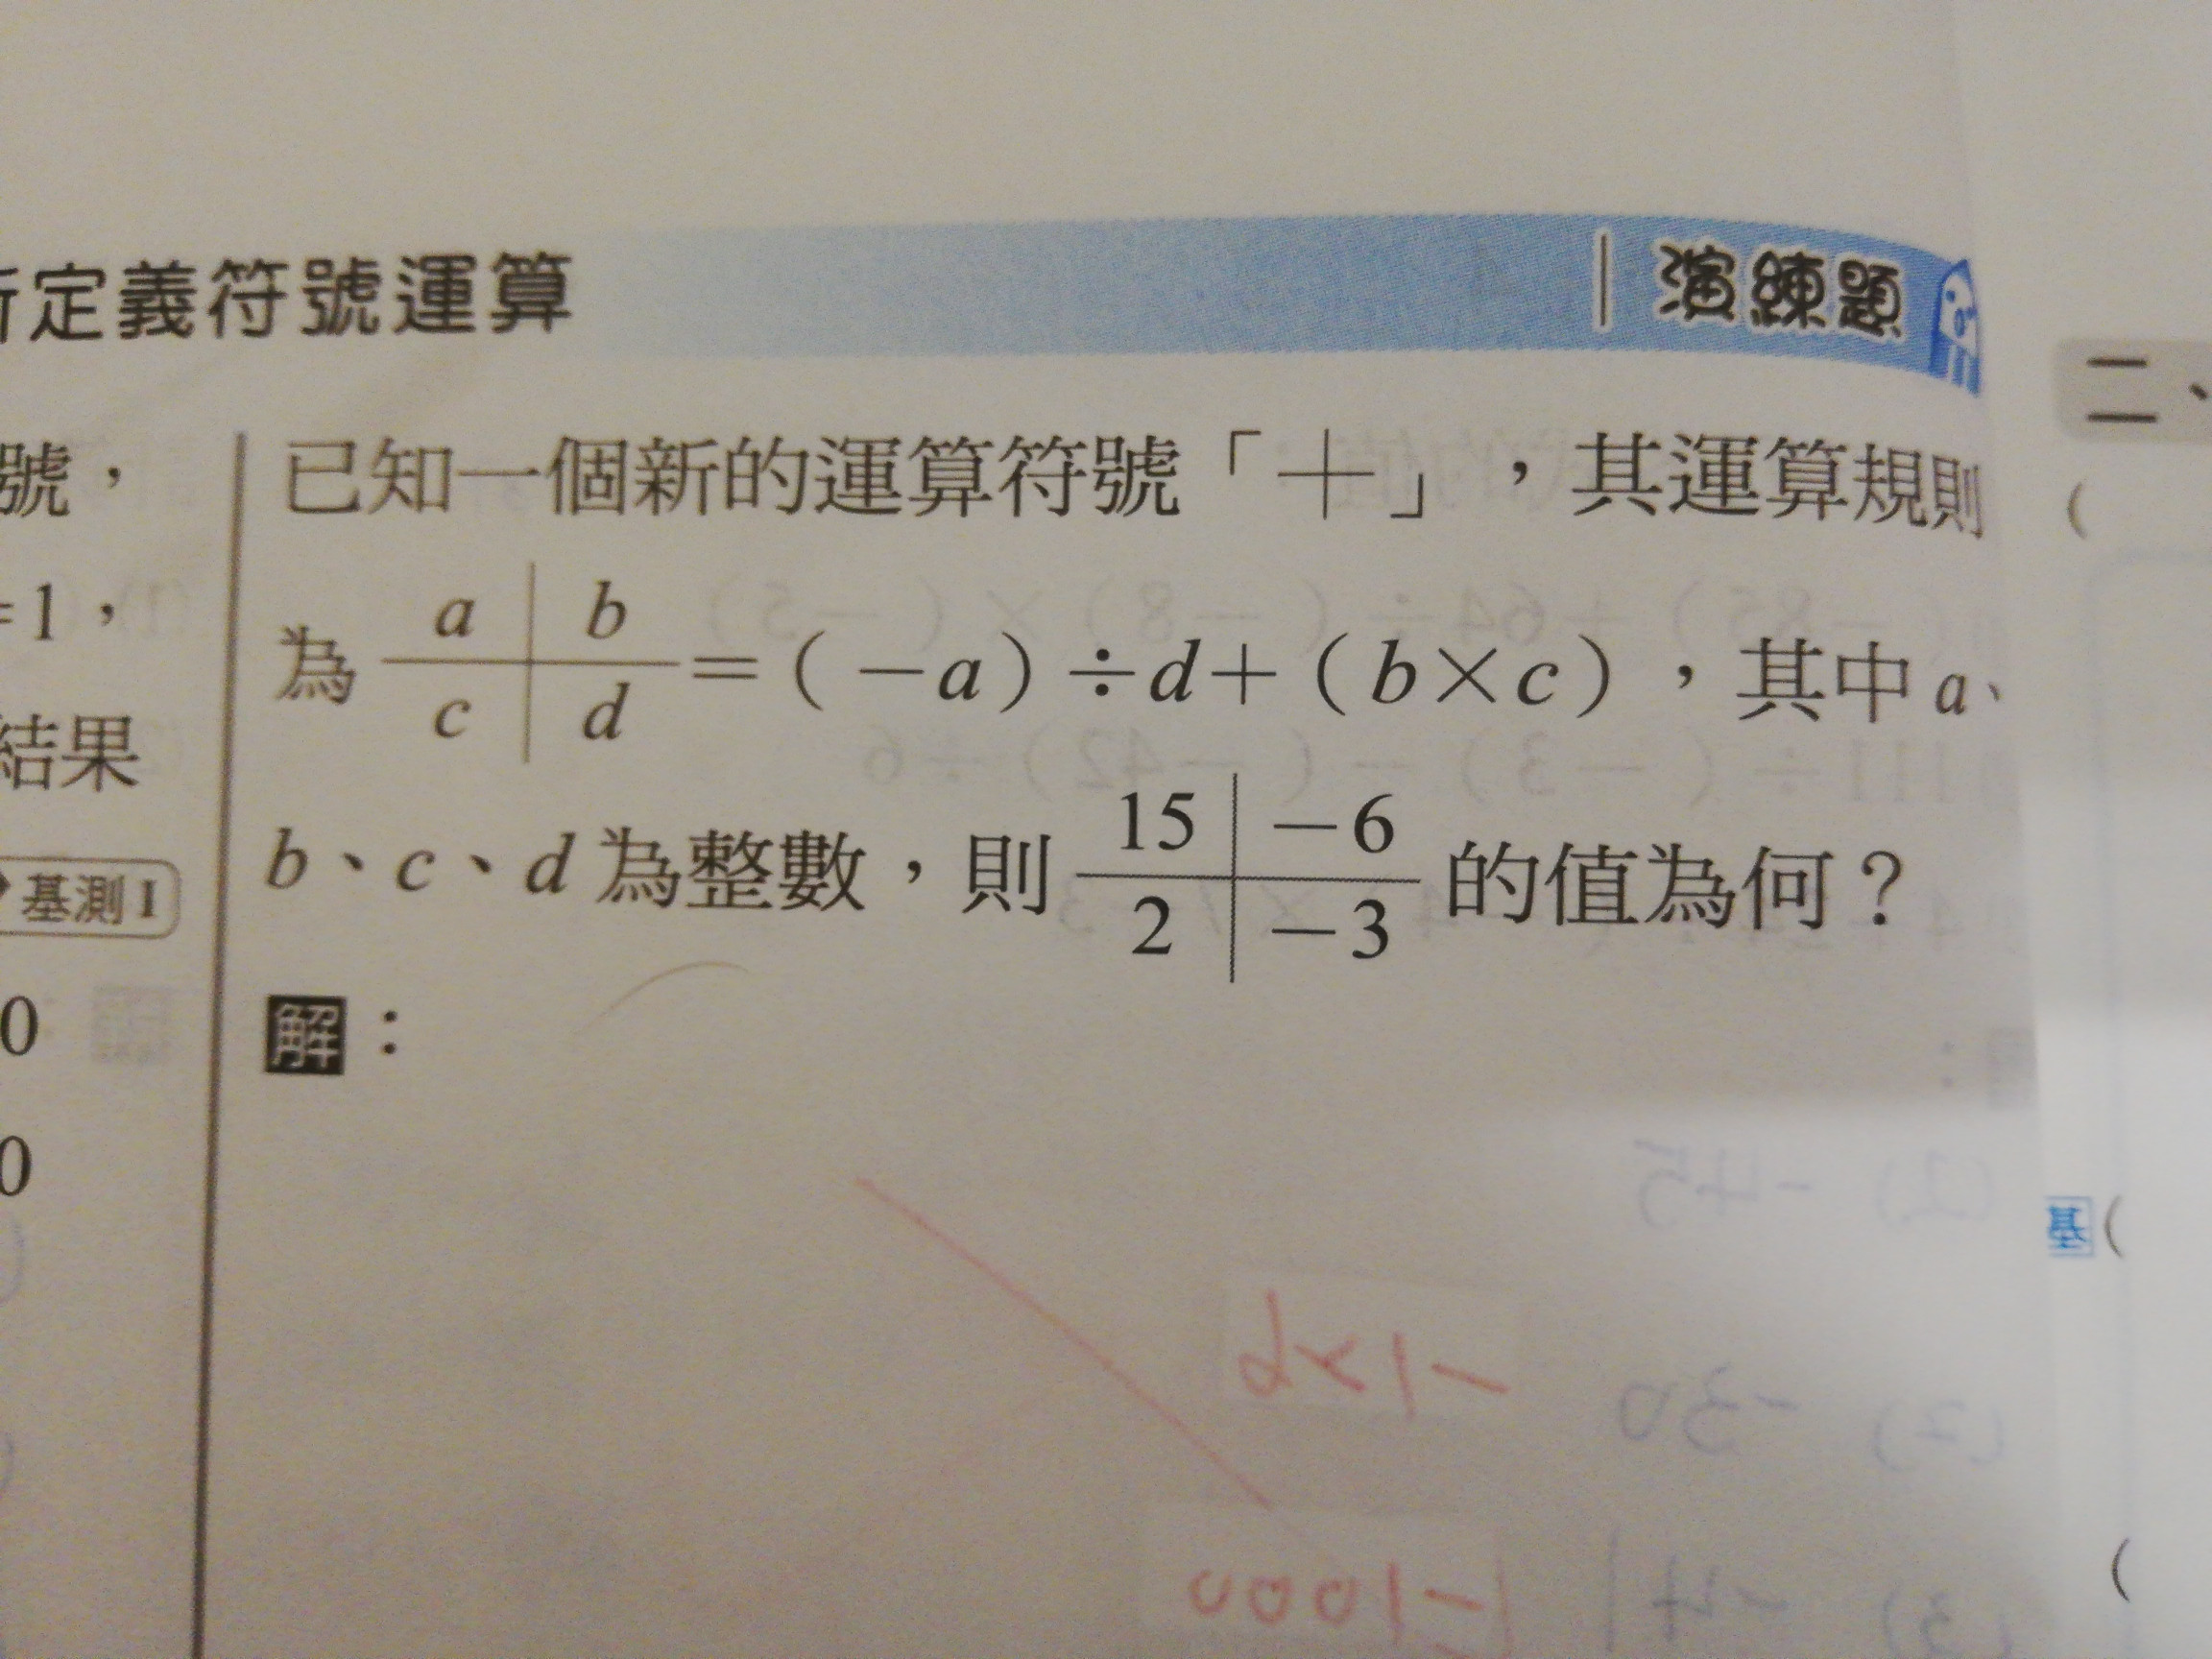 定義符號運算
演練題
二、
號，
=1，
結果
基測I
0
0
已知一個新的運算符號「十」，其運算規則
為 a b c d =(-a)÷d+(b×c)，其中a、
b、c、d為整數，則 15 -6 2 -3 的值為何？
解：
(
基 (
(